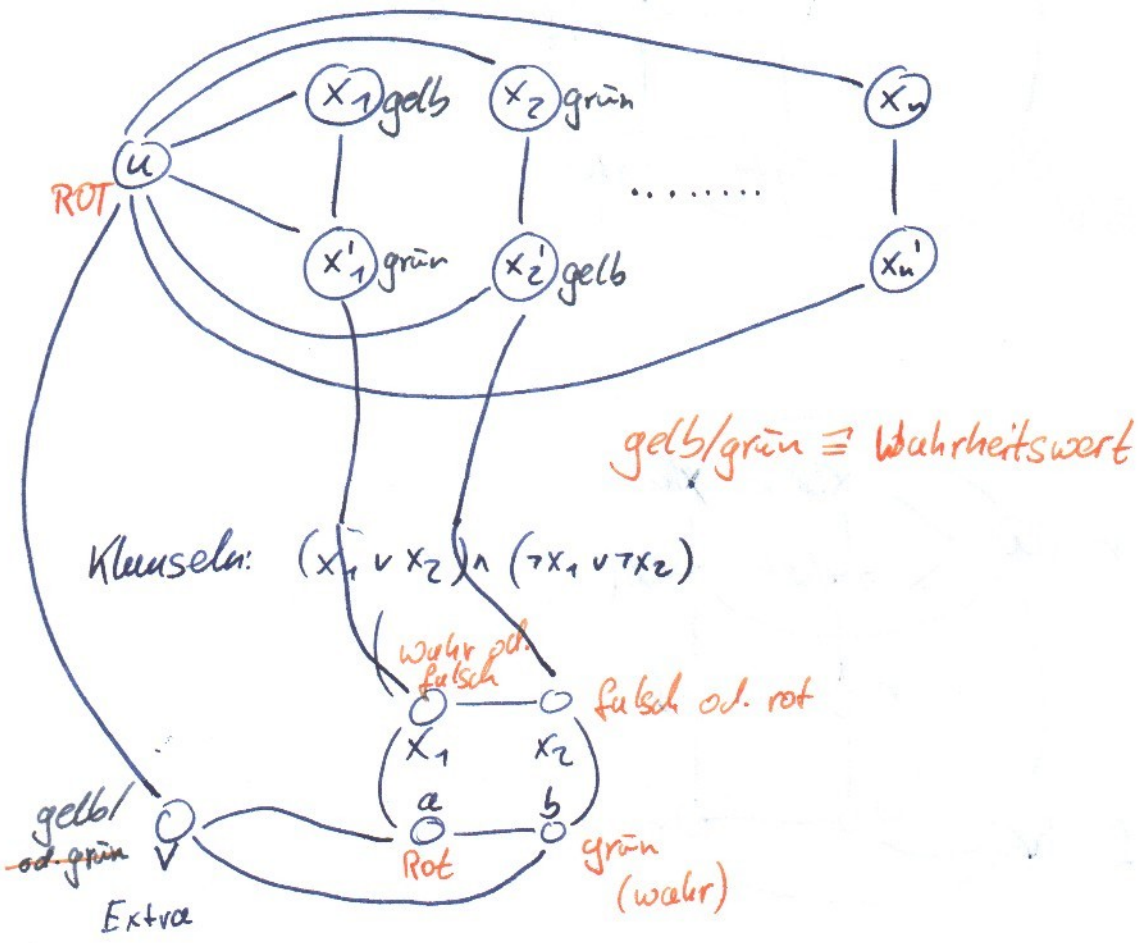 x1 gelb x2 grün xn
u
ROT
........
x1' grün x2' gelb xn'
gelb/grün ≡ Wahrheitswert
Klauseln: (x1 ∨ x2) ∧ (¬x1 ∨ ¬x2)
wahr od.
falsch
falsch od. rot
x1 x2
a b
gelb/
od. grün
v
Rot
grün
(wahr)
Extra